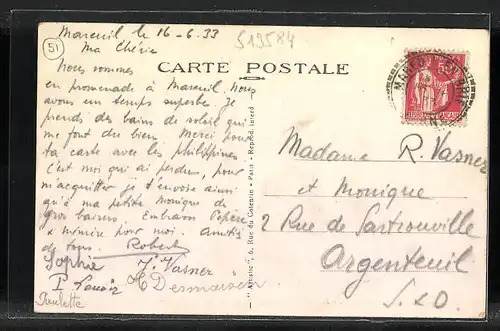 Mareuil le 16-6-33
51
513584
Ma Chérie
CARTE POSTALE
Nous sommes
en promenade à Mareuil. Nous
avons un temps superbe. Je
prends des bains de soleil qui
me font du bien. Merci pour
ta carte avec les philippines
C'est moi qui ai perdu, pour
m'acquitter je t'envoie ainsi
qu'à ma petite Monique de
gros baisers. Embrasse Pépère
& mémère pour moi. Amitiés
de tous. Robert
Sophie J. Vasner
Paulette
"Artistic", 6, Rue du Cotentin - Paris - Reprod. Interd
50
Madame R. Vasner
et Monique
2 Rue de Sartrouville
Argenteuil
S. & O.